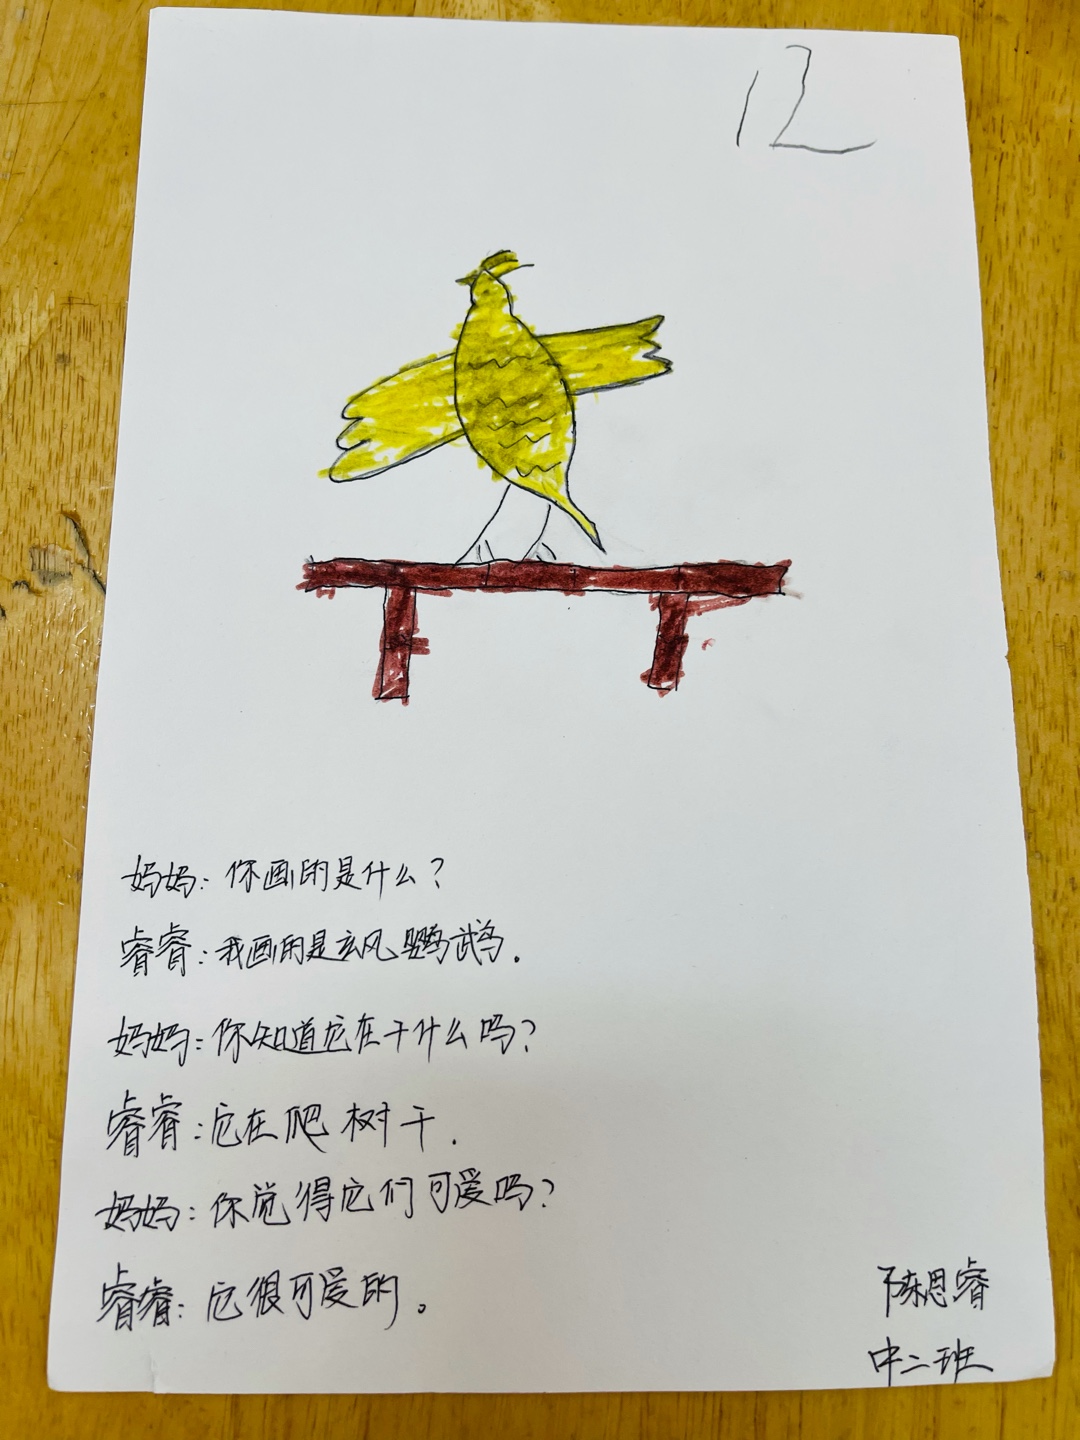 12
妈妈：你画的是什么？
睿睿：我画的是玄风鹦鹉.
妈妈：你知道它在干什么吗？
睿睿：它在爬树干.
妈妈：你觉得它们可爱吗？
睿睿：它很可爱的。
陈思睿
中二班